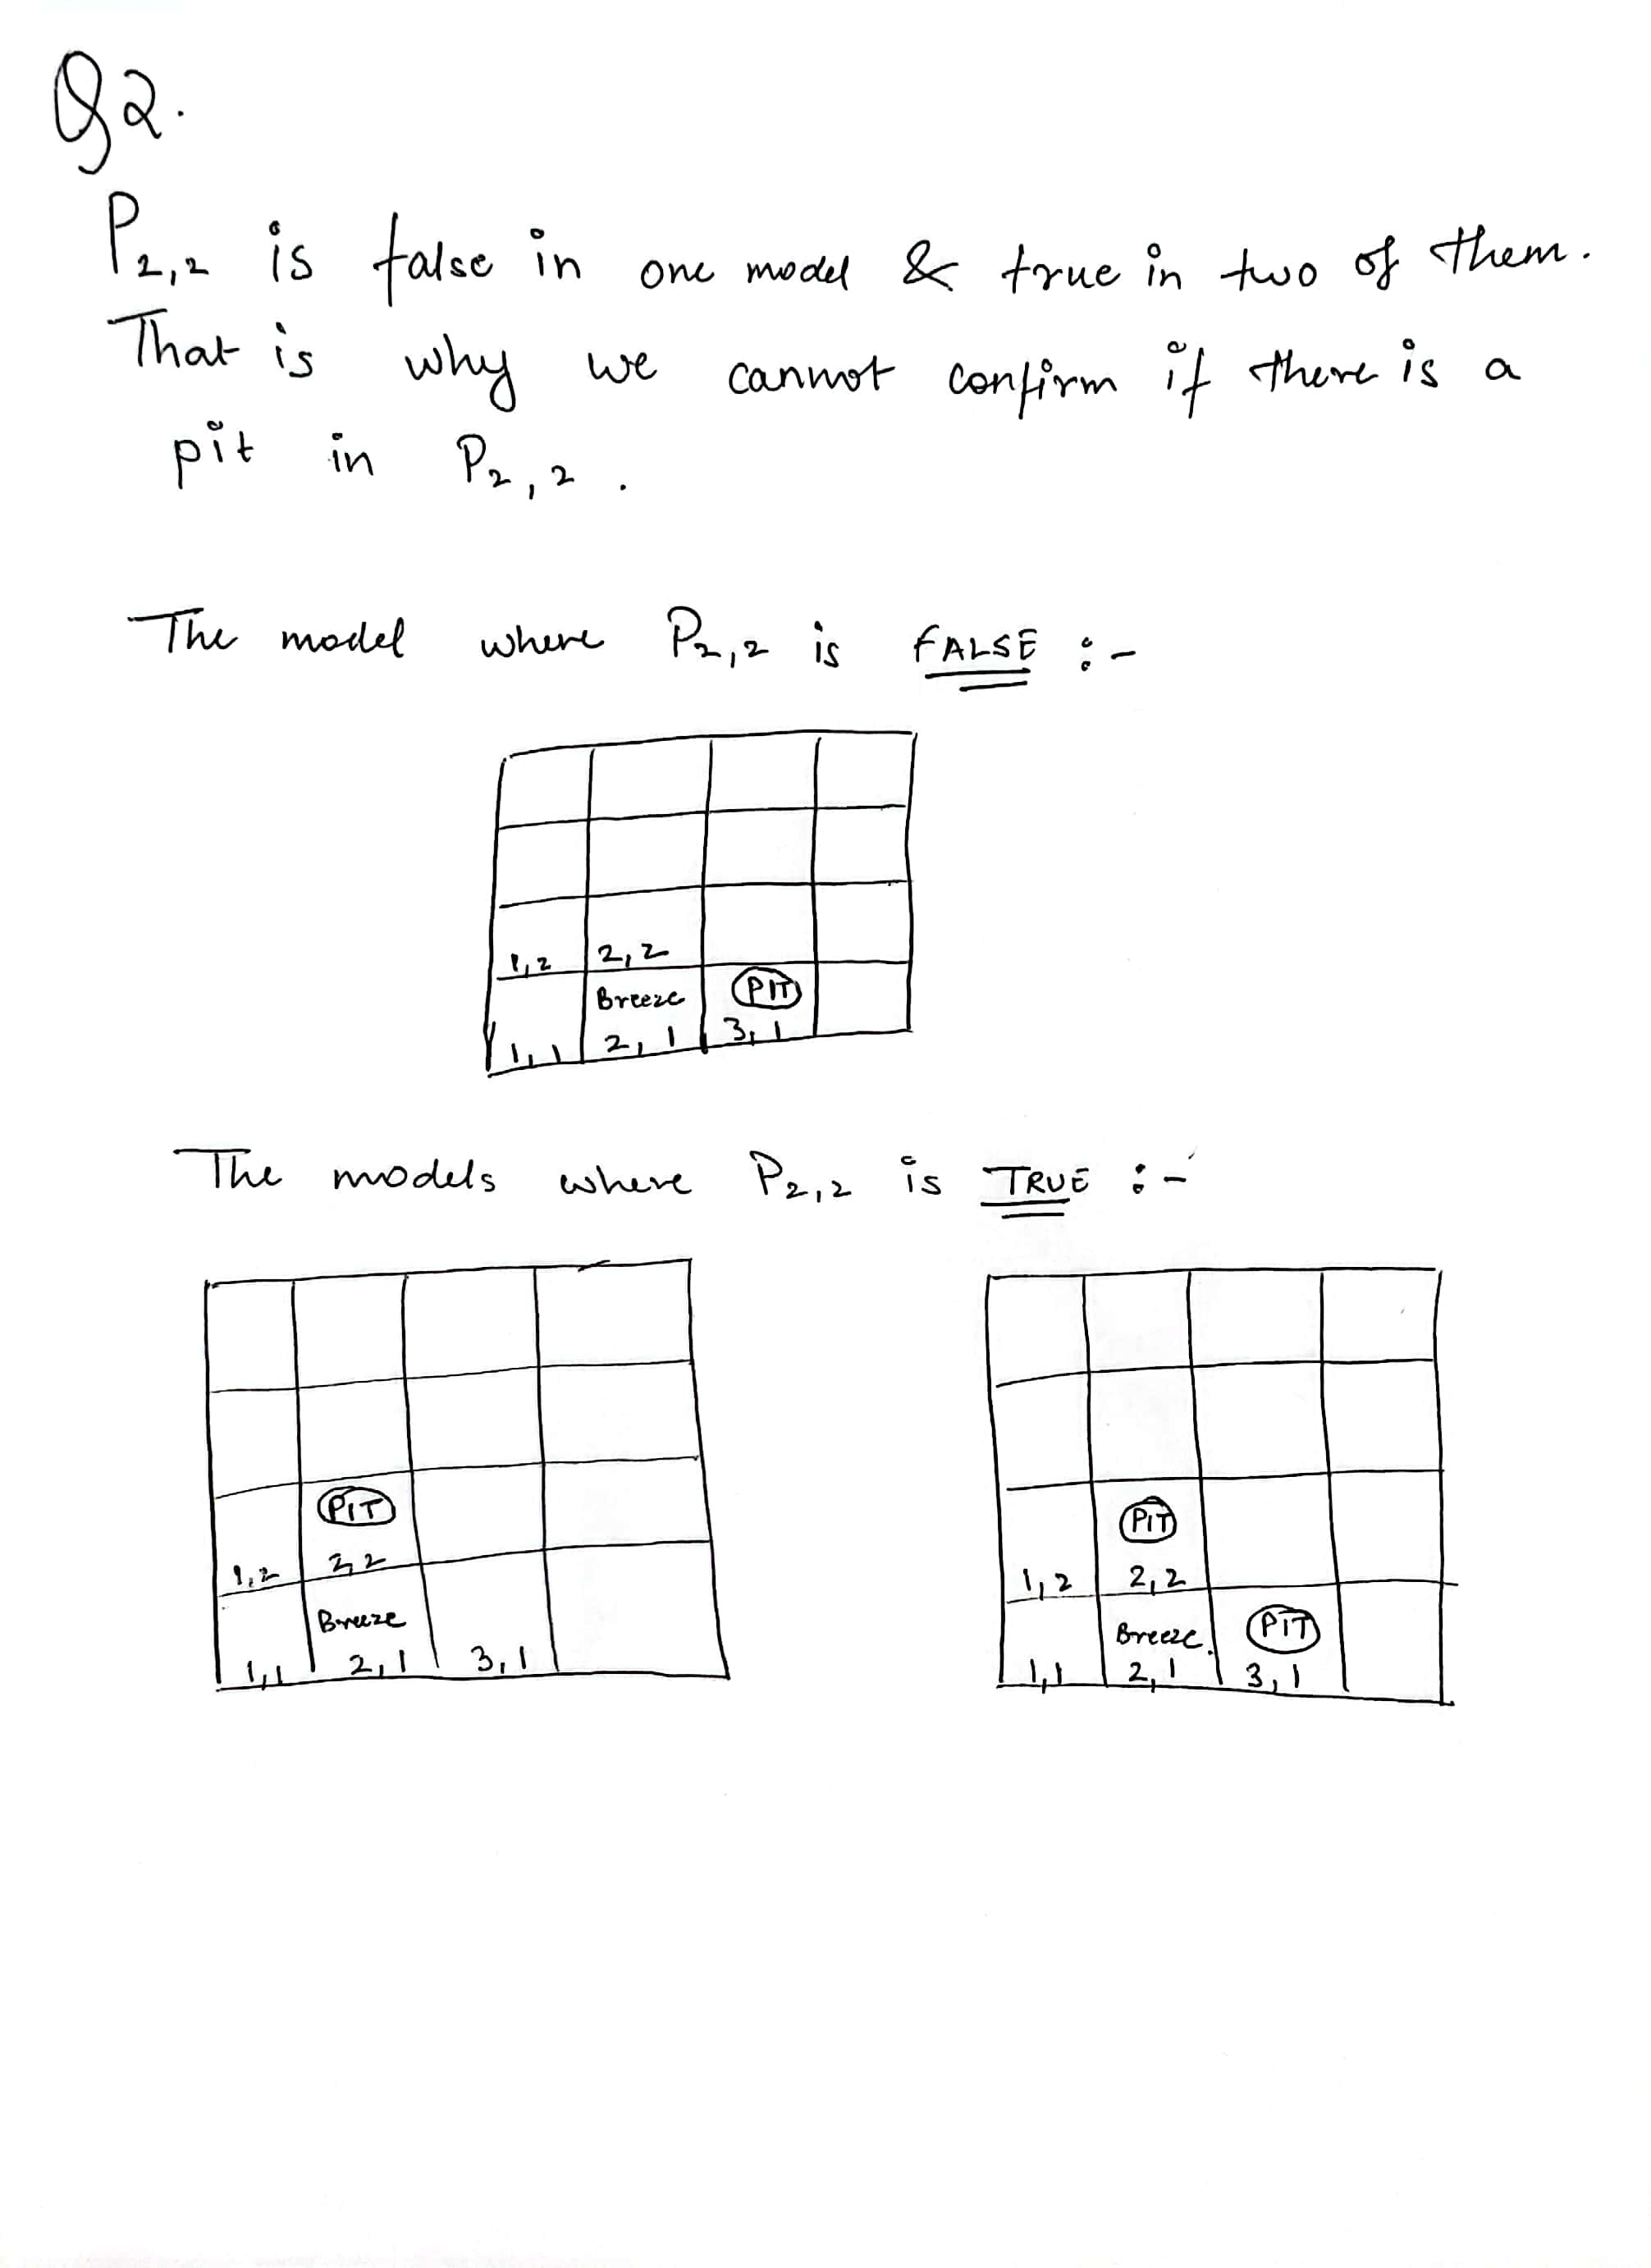 Q2.
P2,2 is false in one model & true in two of them.
That is why we cannot confirm if there is a
pit in P2,2.
The model where P2,2 is FALSE :-
1,2 2,2
Breeze PIT
1,1 2,1 3,1
The models where P2,2 is TRUE :-
PIT
1,2 2,2
Breeze
1,1 2,1 3,1
PIT
1,2 2,2
Breeze PIT
1,1 2,1 3,1